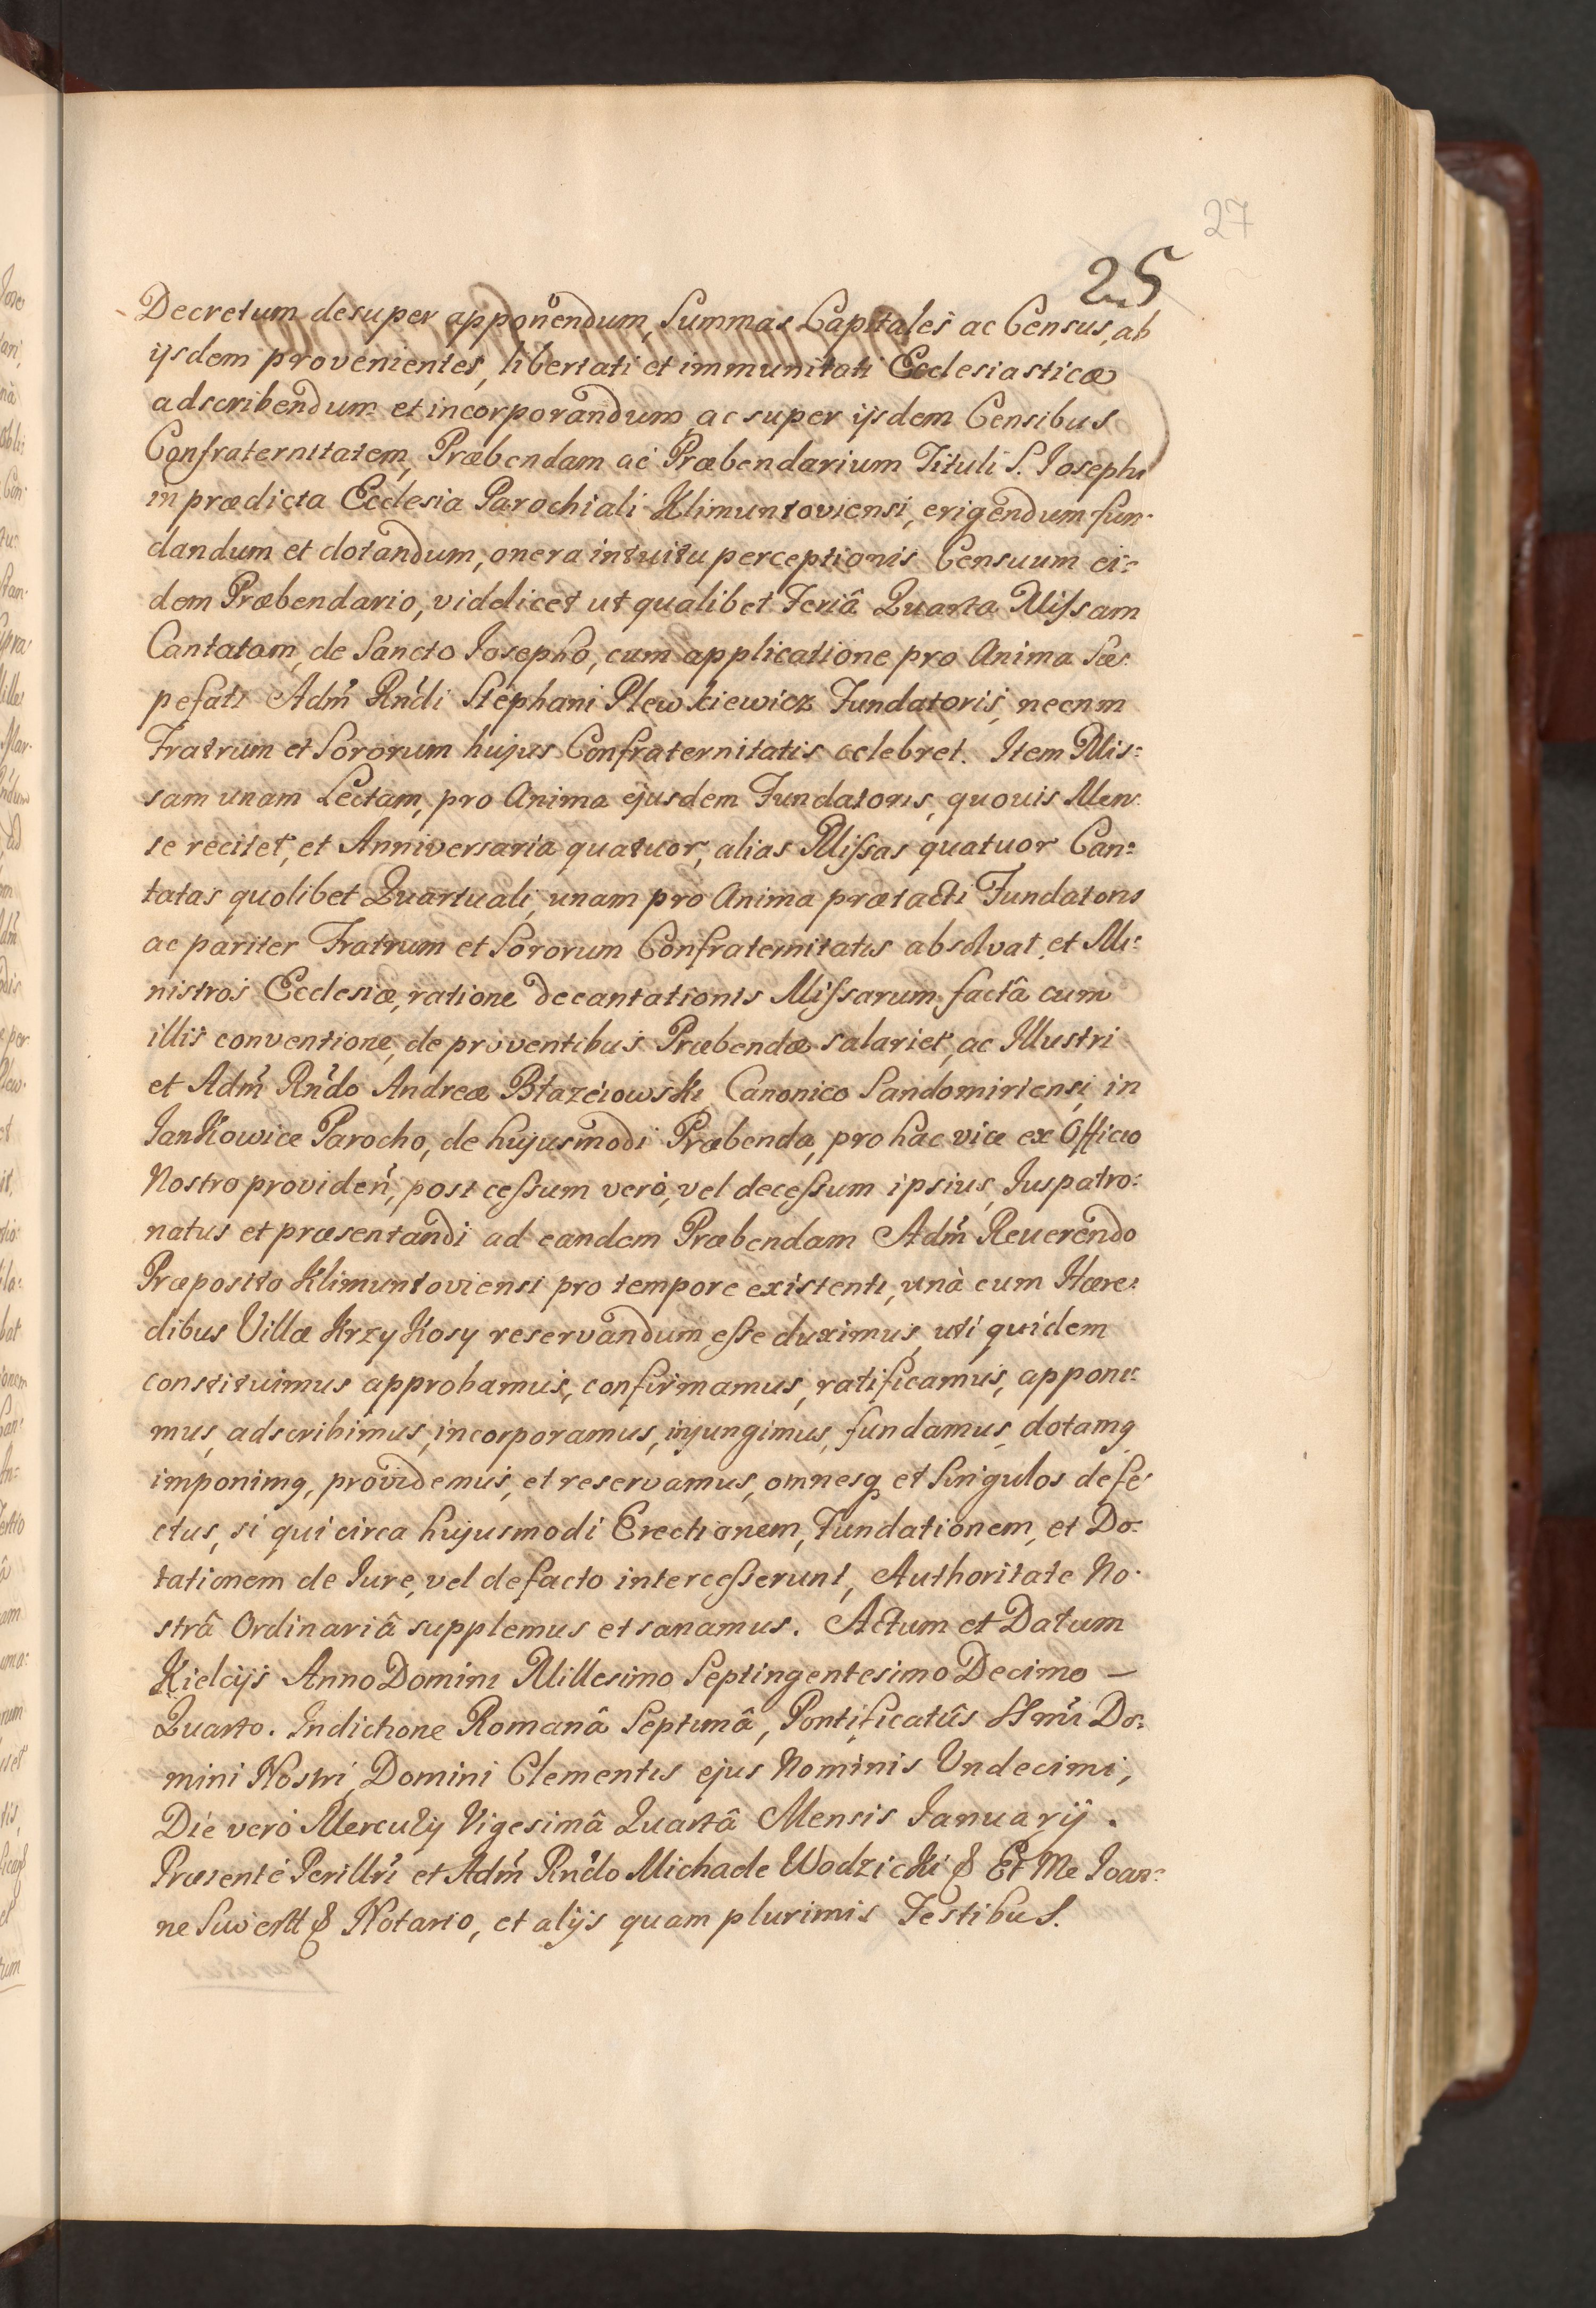 27
25
Decretum desuper apponendum, Summas Capitales ac Census, ab
ijsdem provenientes, libertati et immunitati Ecclesiasticæ
adscribendum et incorporandum, ac super ijsdem Censibus
Confraternitatem, Præbendam ac Præbendarium Tituli S. Josephi
in prædicta Ecclesia Parochiali Klimuntoviensi, erigendum fun-
dandum et dotandum, onera intuitu perceptionis Censuum ei-
dem Præbendario, videlicet ut qualibet Feriâ Quarta Missam
Cantatam, de Sancto Josepho, cum applicatione pro Anima Sæ-
pefati Adm̃ Rñdi Stephani Plewkiewicz Fundatoris, necnon
Fratrum et Sororum hujus Confraternitatis celebret. Item Mis-
sam unam Lectam, pro Anima ejusdem Fundatoris, quovis Men-
se recitet, et Anniversaria quatuor, alias Missas quatuor Can-
tatas quolibet Quartuali, unam pro Anima prætacti Fundatoris
ac pariter Fratrum et Sororum Confraternitatis absolvat, et Mi-
nistros Ecclesiæ, ratione decantationis Missarum, factâ cum
illis conventione, de proventibus Præbendæ salariet, ac Illustri
et Adm̃ Rñdo Andreæ Błazeiowski, Canonico Sandomiriensi, in
Jankowice Parocho, de hujusmodi Præbenda, pro hac vice ex Officio
Nostro provideñ, post cessum verò, vel decessum ipsius, Juspatro-
natus et præsentandi ad eandem Præbendam Adm̃ Reverendo
Præposito Klimuntoviensi pro tempore existenti, unà cum Hære-
dibus Villæ Krzykosy reservandum esse duximus, uti quidem
constituimus approbamus, confirmamus, ratificamus, appone-
mus, adscribimus, incorporamus, injungimus, fundamus, dotamq
imponimq, providemus, et reservamus, omnesq et singulos defe-
ctus, si qui circa hujusmodi Erectionem, Fundationem, et Do-
tationem de Jure, vel de facto intercesserunt, Authoritate No-
strâ Ordinariâ supplemus et sanamus. Actum et Datum
Kielcijs Anno Domini Millesimo Septingentesimo Decimo —
Quarto. Indictione Romanâ Septimâ, Pontificatûs SSmi Do-
mini Nostri, Domini Clementis ejus Nominis Undecimi,
Die verò Mercurij Vigesimâ Quartâ Mensis Januarij.
Præsente Perillri et Adm̃ Rñdo Michaele Wodzicki & Et Me Joan-
ne Suwertt & Notario, et alijs quam plurimis Testibus.